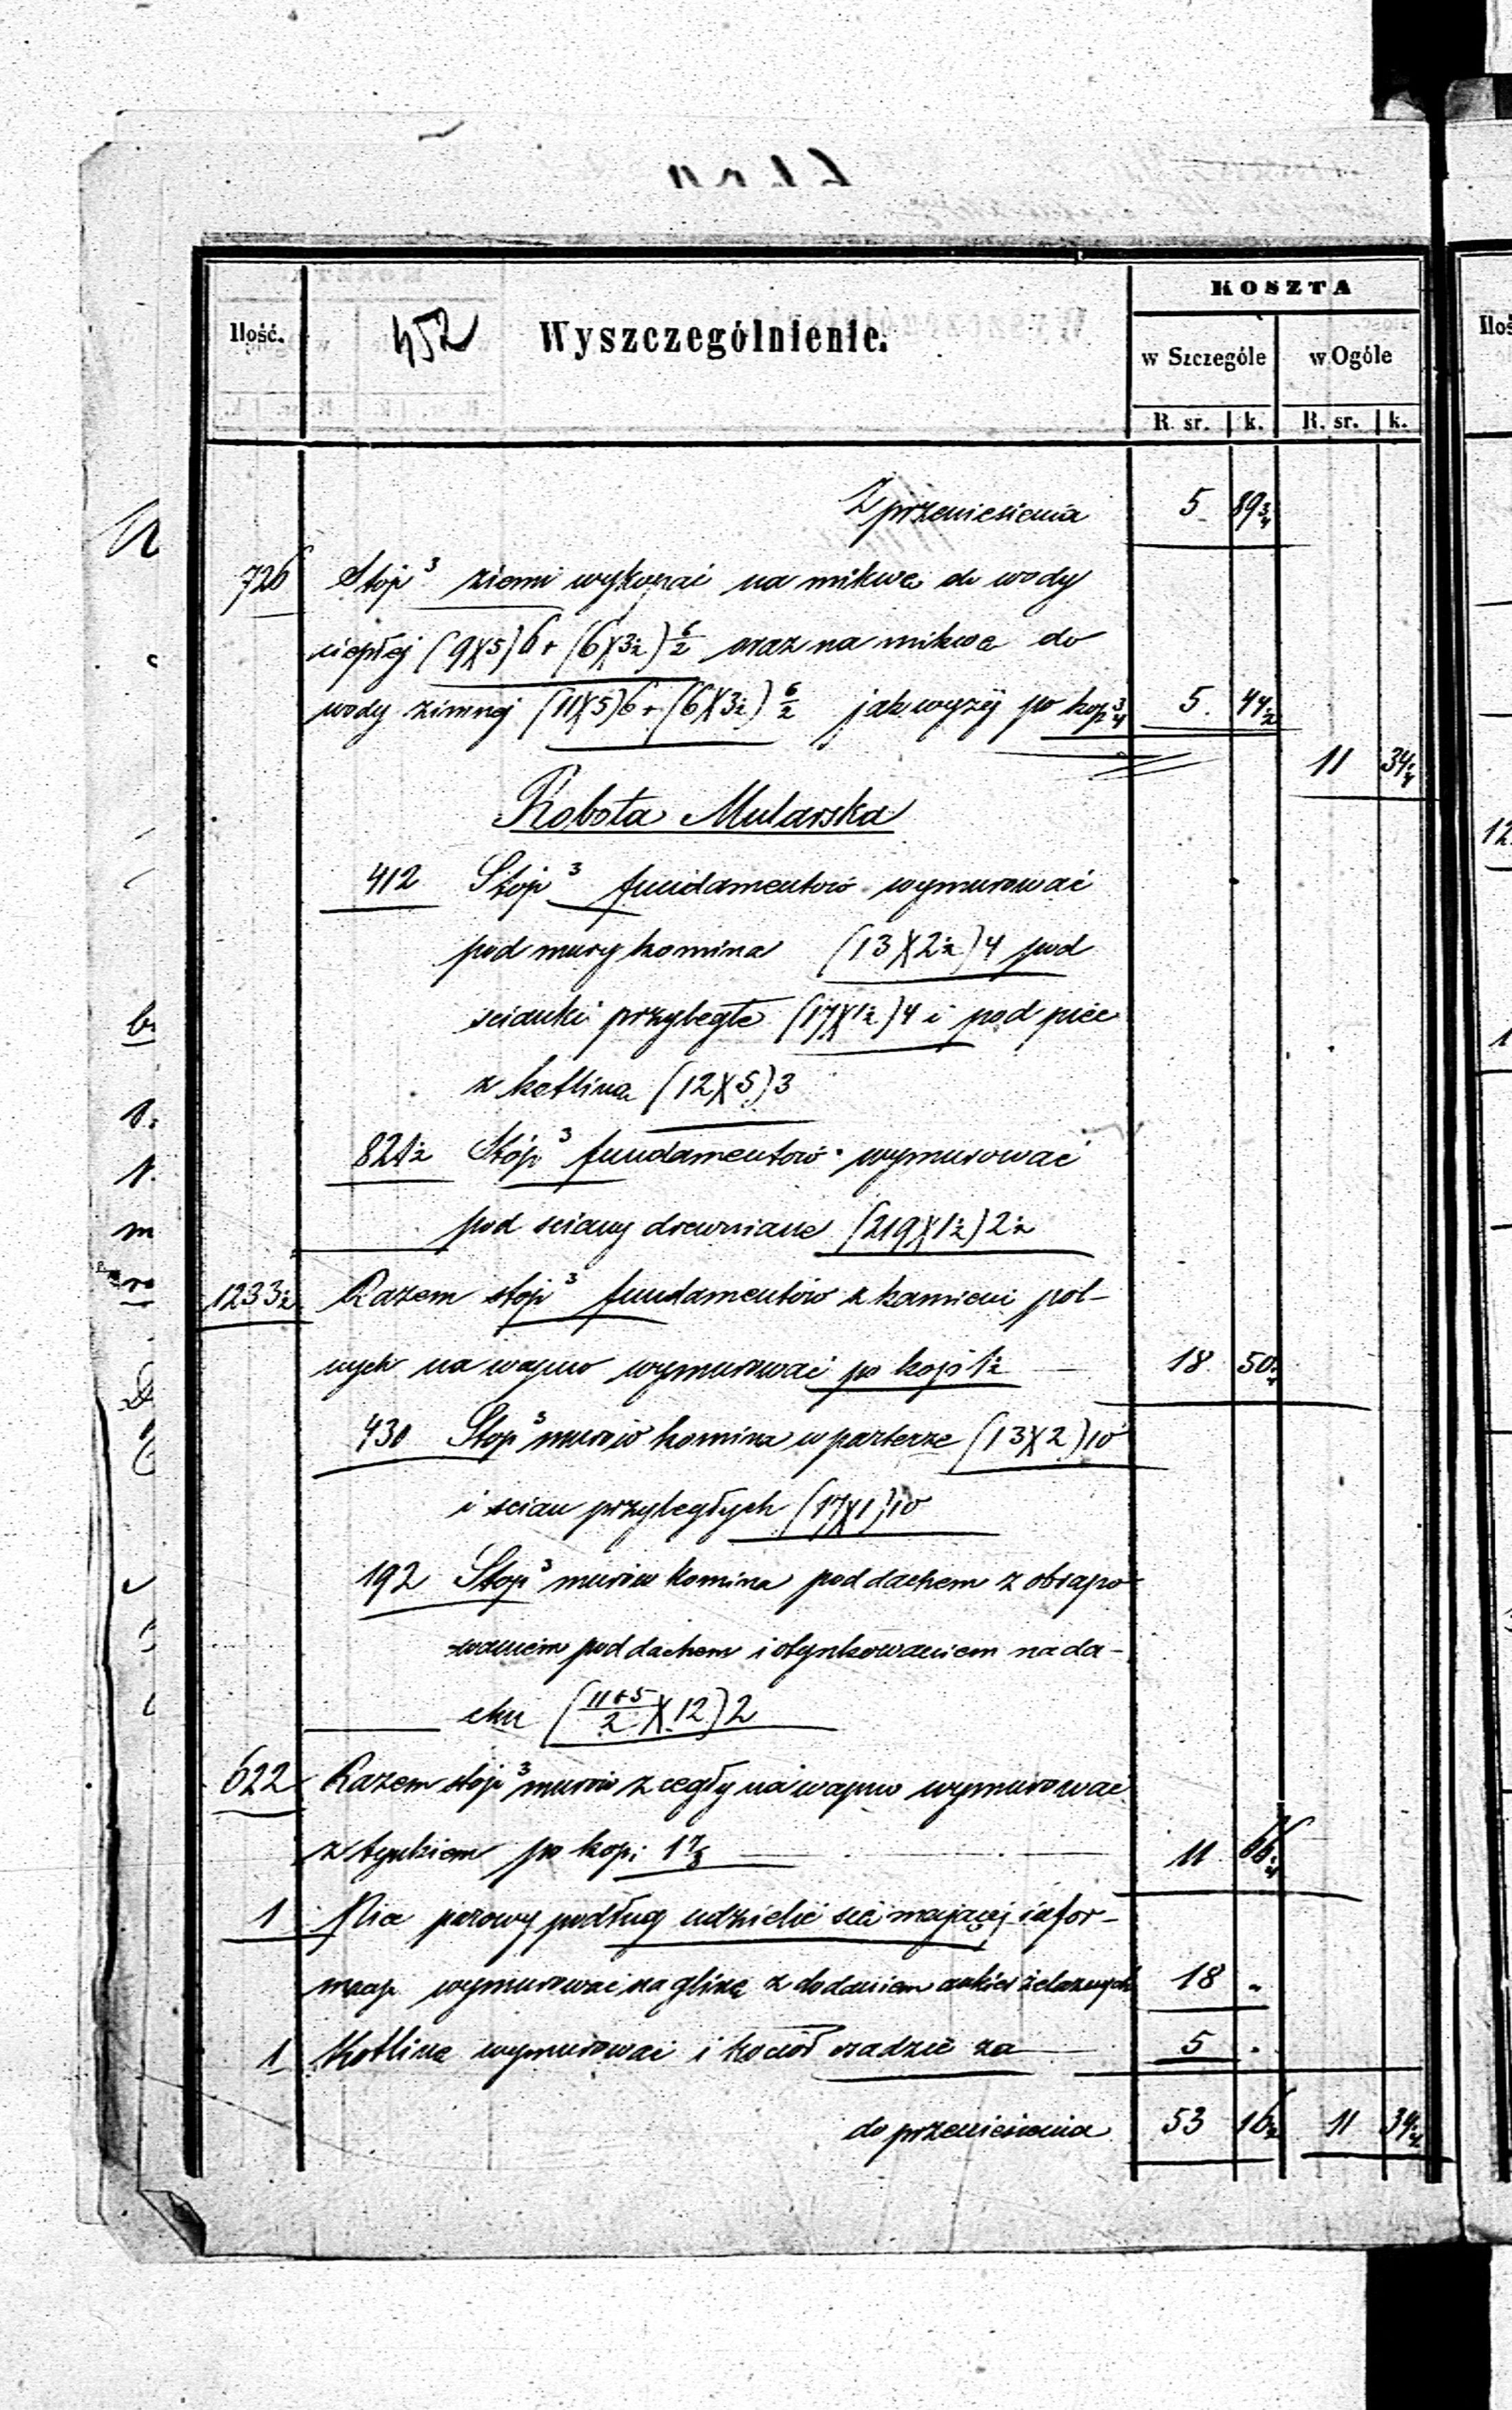 KOSZTA
Ilość. 452 Wyszczególnienie. w Szczególe w Ogóle
R. sr. k. R. sr. k.
Z przeniesienia 5 89 3/4
726 Stóp ³ ziemi wykopać na mikwę do wody
ciepłej (9X5)6 + (6X3½) 6/2 oraz na mikwę do
wody zimnej (11X5)6 + (6X3½) 6/2 jak wyżej po kop ¾ 5. 44½
11 34¼
Robota Mularska
412 Stóp ³ fundamentów wymurować
pod mury komina (13X2½)4 pod
scianki przyległe (17X1½)4 i pod piec
z kotliną (12X5)3
821½ Stóp ³ fundamentów wymurować
pod sciany drewniane (219X1½)2½
1233½ Razem stóp ³ fundamentów z kamieni pol-
nych na wapno wymurować po kop: 1½ 18 50¼
430 Stóp ³ murów komina w parterze (13X2)10
i scian przyległych (17X1)10
192 Stóp ³ murów komina pod dachem z obrapo
waniem pod dachem i otynkowaniem na da-
chu (11+5/2 X 12)2
622 Razem stóp ³ murów z cegły na wapno wymurować
z tynkiem po kop: 1 7/8 11 66¼
1 Piec parowy podług udzielić się mającej infor-
macji wymurować na glinę z dodaniem ankier żelaznych 18 "
1 Kotlinę wymurować i kocioł osadzić za 5 "
do przeniesienia 53 16½ 11 34¼